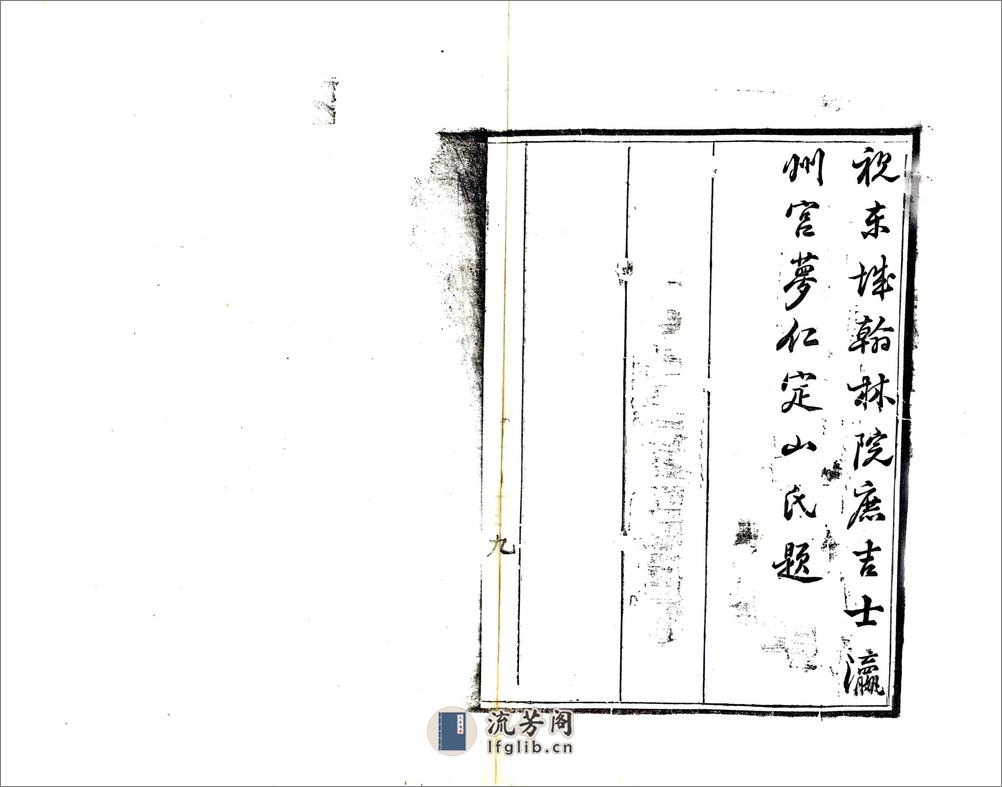 祝东城翰林院庶吉士瀛
州宫夢仁定山氏题
九
流芳阁
lfglib.cn